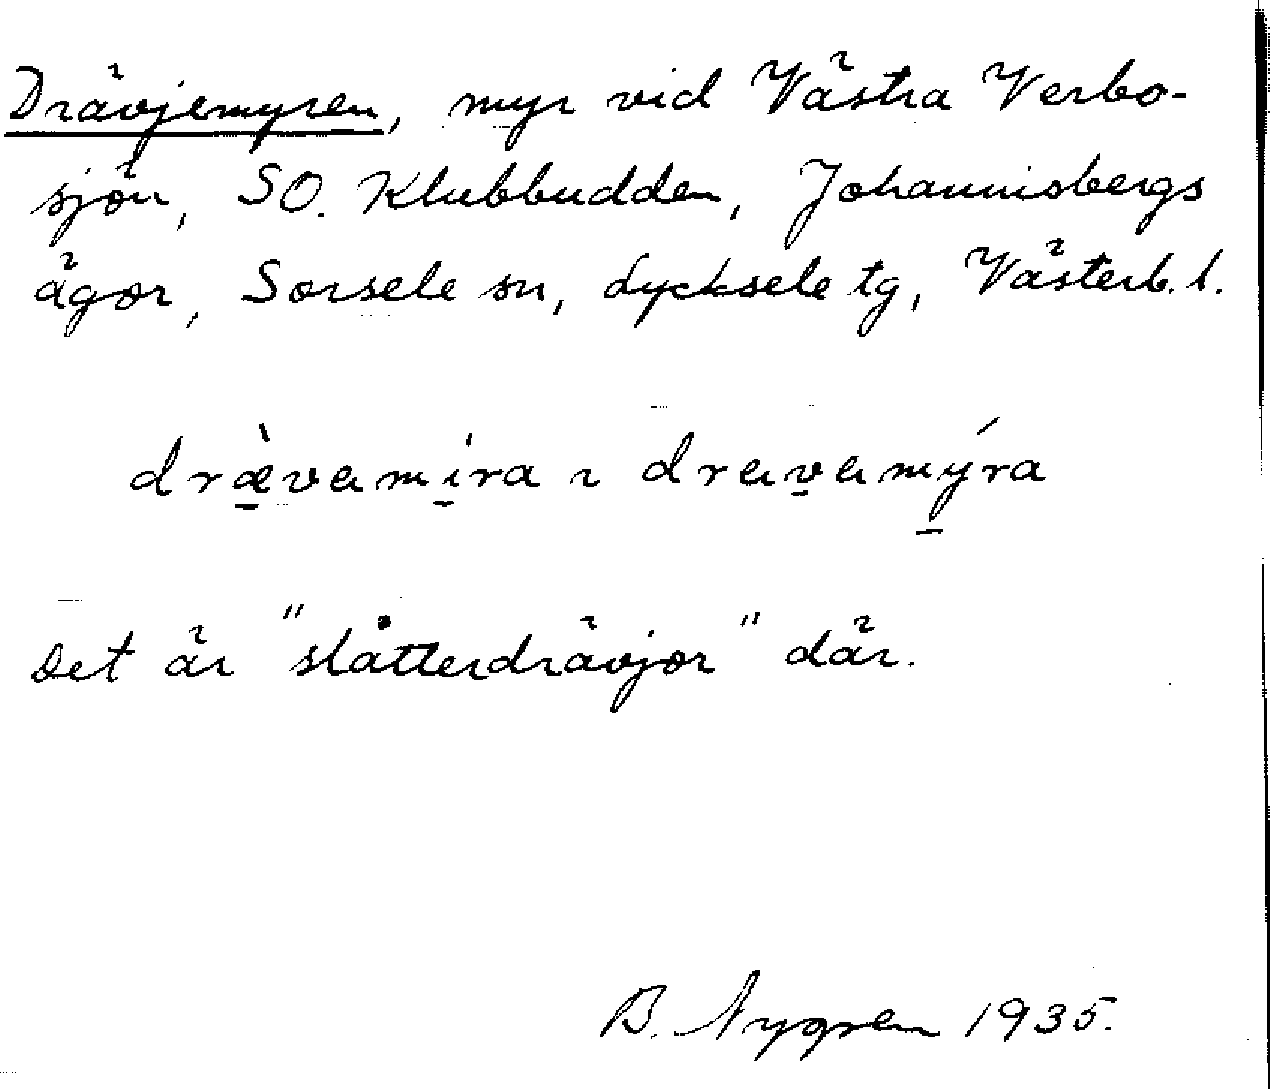 Drävjemyren, myr vid Västra Verbo-
sjön, SO. Klubbudden, Johannisbergs
ägor, Sorsele sn, Lycksele tg, Västerb. l.
dræ̀vamira ~ dravamýra
Det är "slåtterdrävjor" där.
B. Nygren 1935.